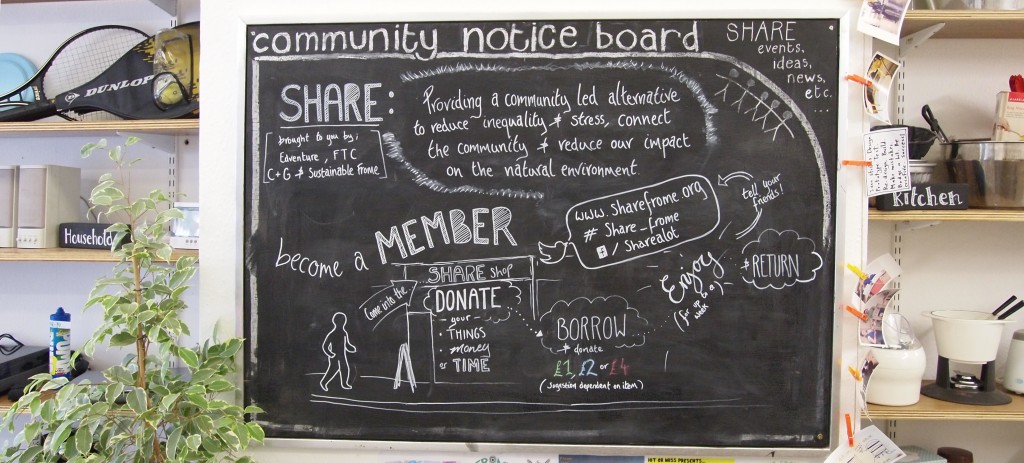 community notice board
SHARE
events,
ideas,
news,
etc.
...
SHARE:
brought to you by;
Edventure, FTC
C+G & Sustainable frome
Providing a community led alternative
to reduce inequality & stress, connect
the community & reduce our impact
on the natural environment
www.sharefrome.org
# Share_frome
/ Sharealot
tell your
friends!
become a MEMBER
SHARE shop
come into the
DONATE
- your -
• THINGS
• money
or TIME
BORROW
& donate
£1, £2 or £4
(suggestion dependent on item)
Enjoy
(for up to a
week)
& RETURN
DUNLOP
Household
Kitchen
HIT OR MISS PRESENTS...